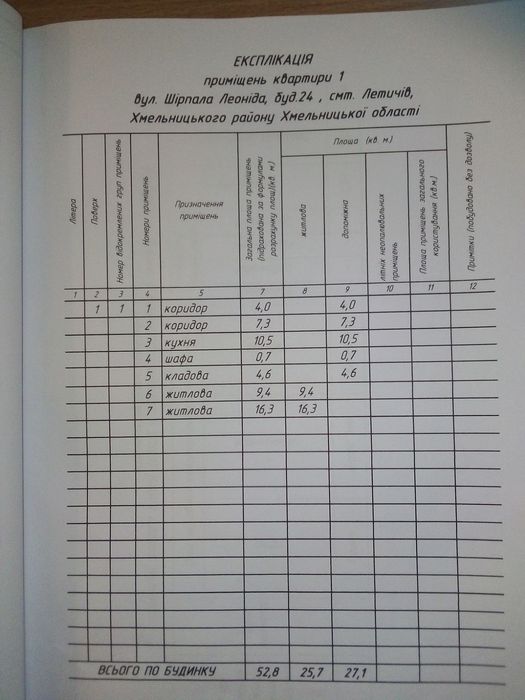 ЕКСПЛІКАЦІЯ
приміщень квартири 1
вул. Шірпала Леоніда, буд.24 , смт. Летичів,
Хмельницького району Хмельницької області
Літера
Поверх
Номер відокремлених груп приміщень
Номери приміщень
Призначення
приміщень
Загальна площа приміщень
(підрахована за формулами
розрахунку площ)(кв. м)
Площа (кв. м)
житлова
допоміжна
літніх неопалевальних
приміщень
Площа приміщень загального
користування (кв.м)
Примітки (побудовано без дозволу)
1 2 3 4 5 7 8 9 10 11 12
1 1 1 коридор 4,0 4,0
2 коридор 7,3 7,3
3 кухня 10,5 10,5
4 шафа 0,7 0,7
5 кладова 4,6 4,6
6 житлова 9,4 9,4
7 житлова 16,3 16,3
ВСЬОГО ПО БУДИНКУ 52,8 25,7 27,1